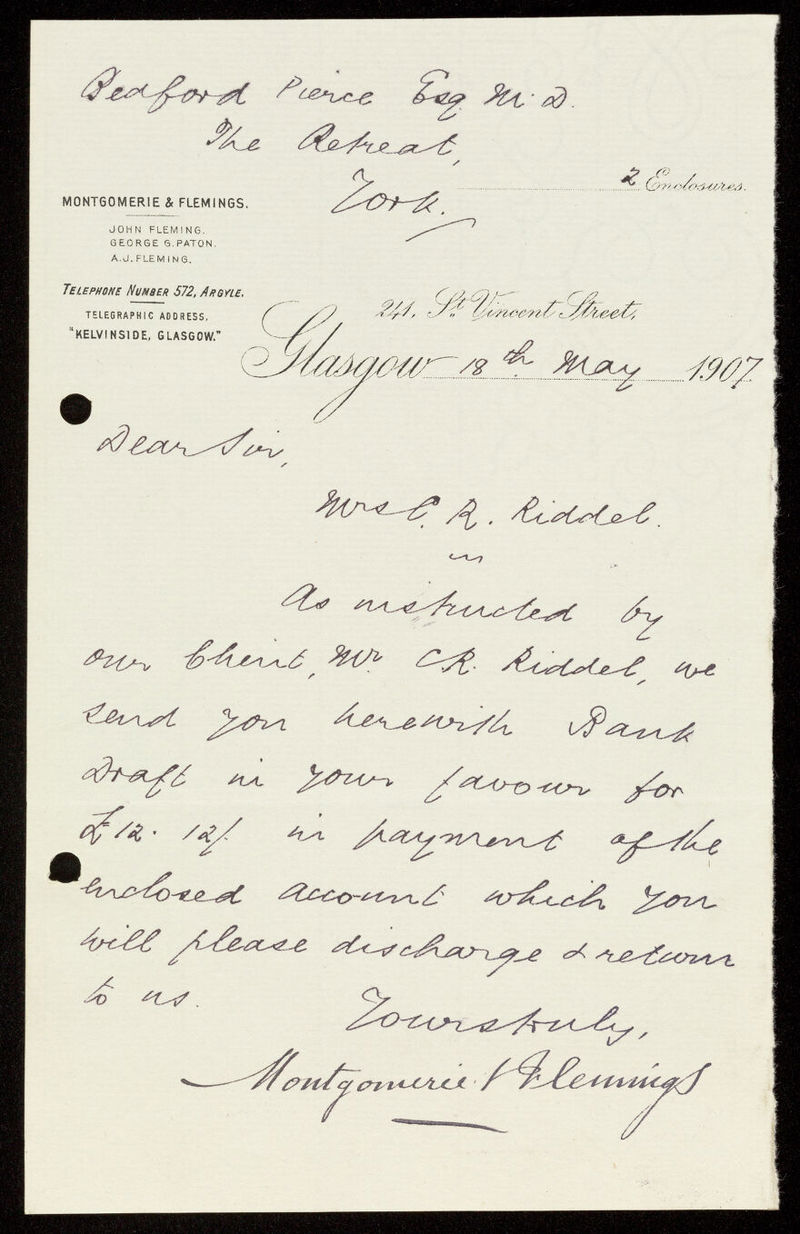 Bedford Pierce Esq. M.D.
The Retreat,
York.
2 Enclosures.
MONTGOMERIE & FLEMINGS.
JOHN FLEMING.
GEORGE G. PATON.
A.J. FLEMING.
TELEPHONE NUMBER 572, ARGYLE.
TELEGRAPHIC ADDRESS.
"KELVINSIDE, GLASGOW."
241, St. Vincent Street,
Glasgow 18th May 1907.
Dear Sir,
Mrs C. R. Riddel.
As instructed by
our Client, Mr. C.R. Riddel, we
send you herewith Bank
Draft in your favour for
£12. 12/. in payment of the
enclosed account which you
will please discharge & return
to us.
Yours truly,
Montgomerie & Flemings